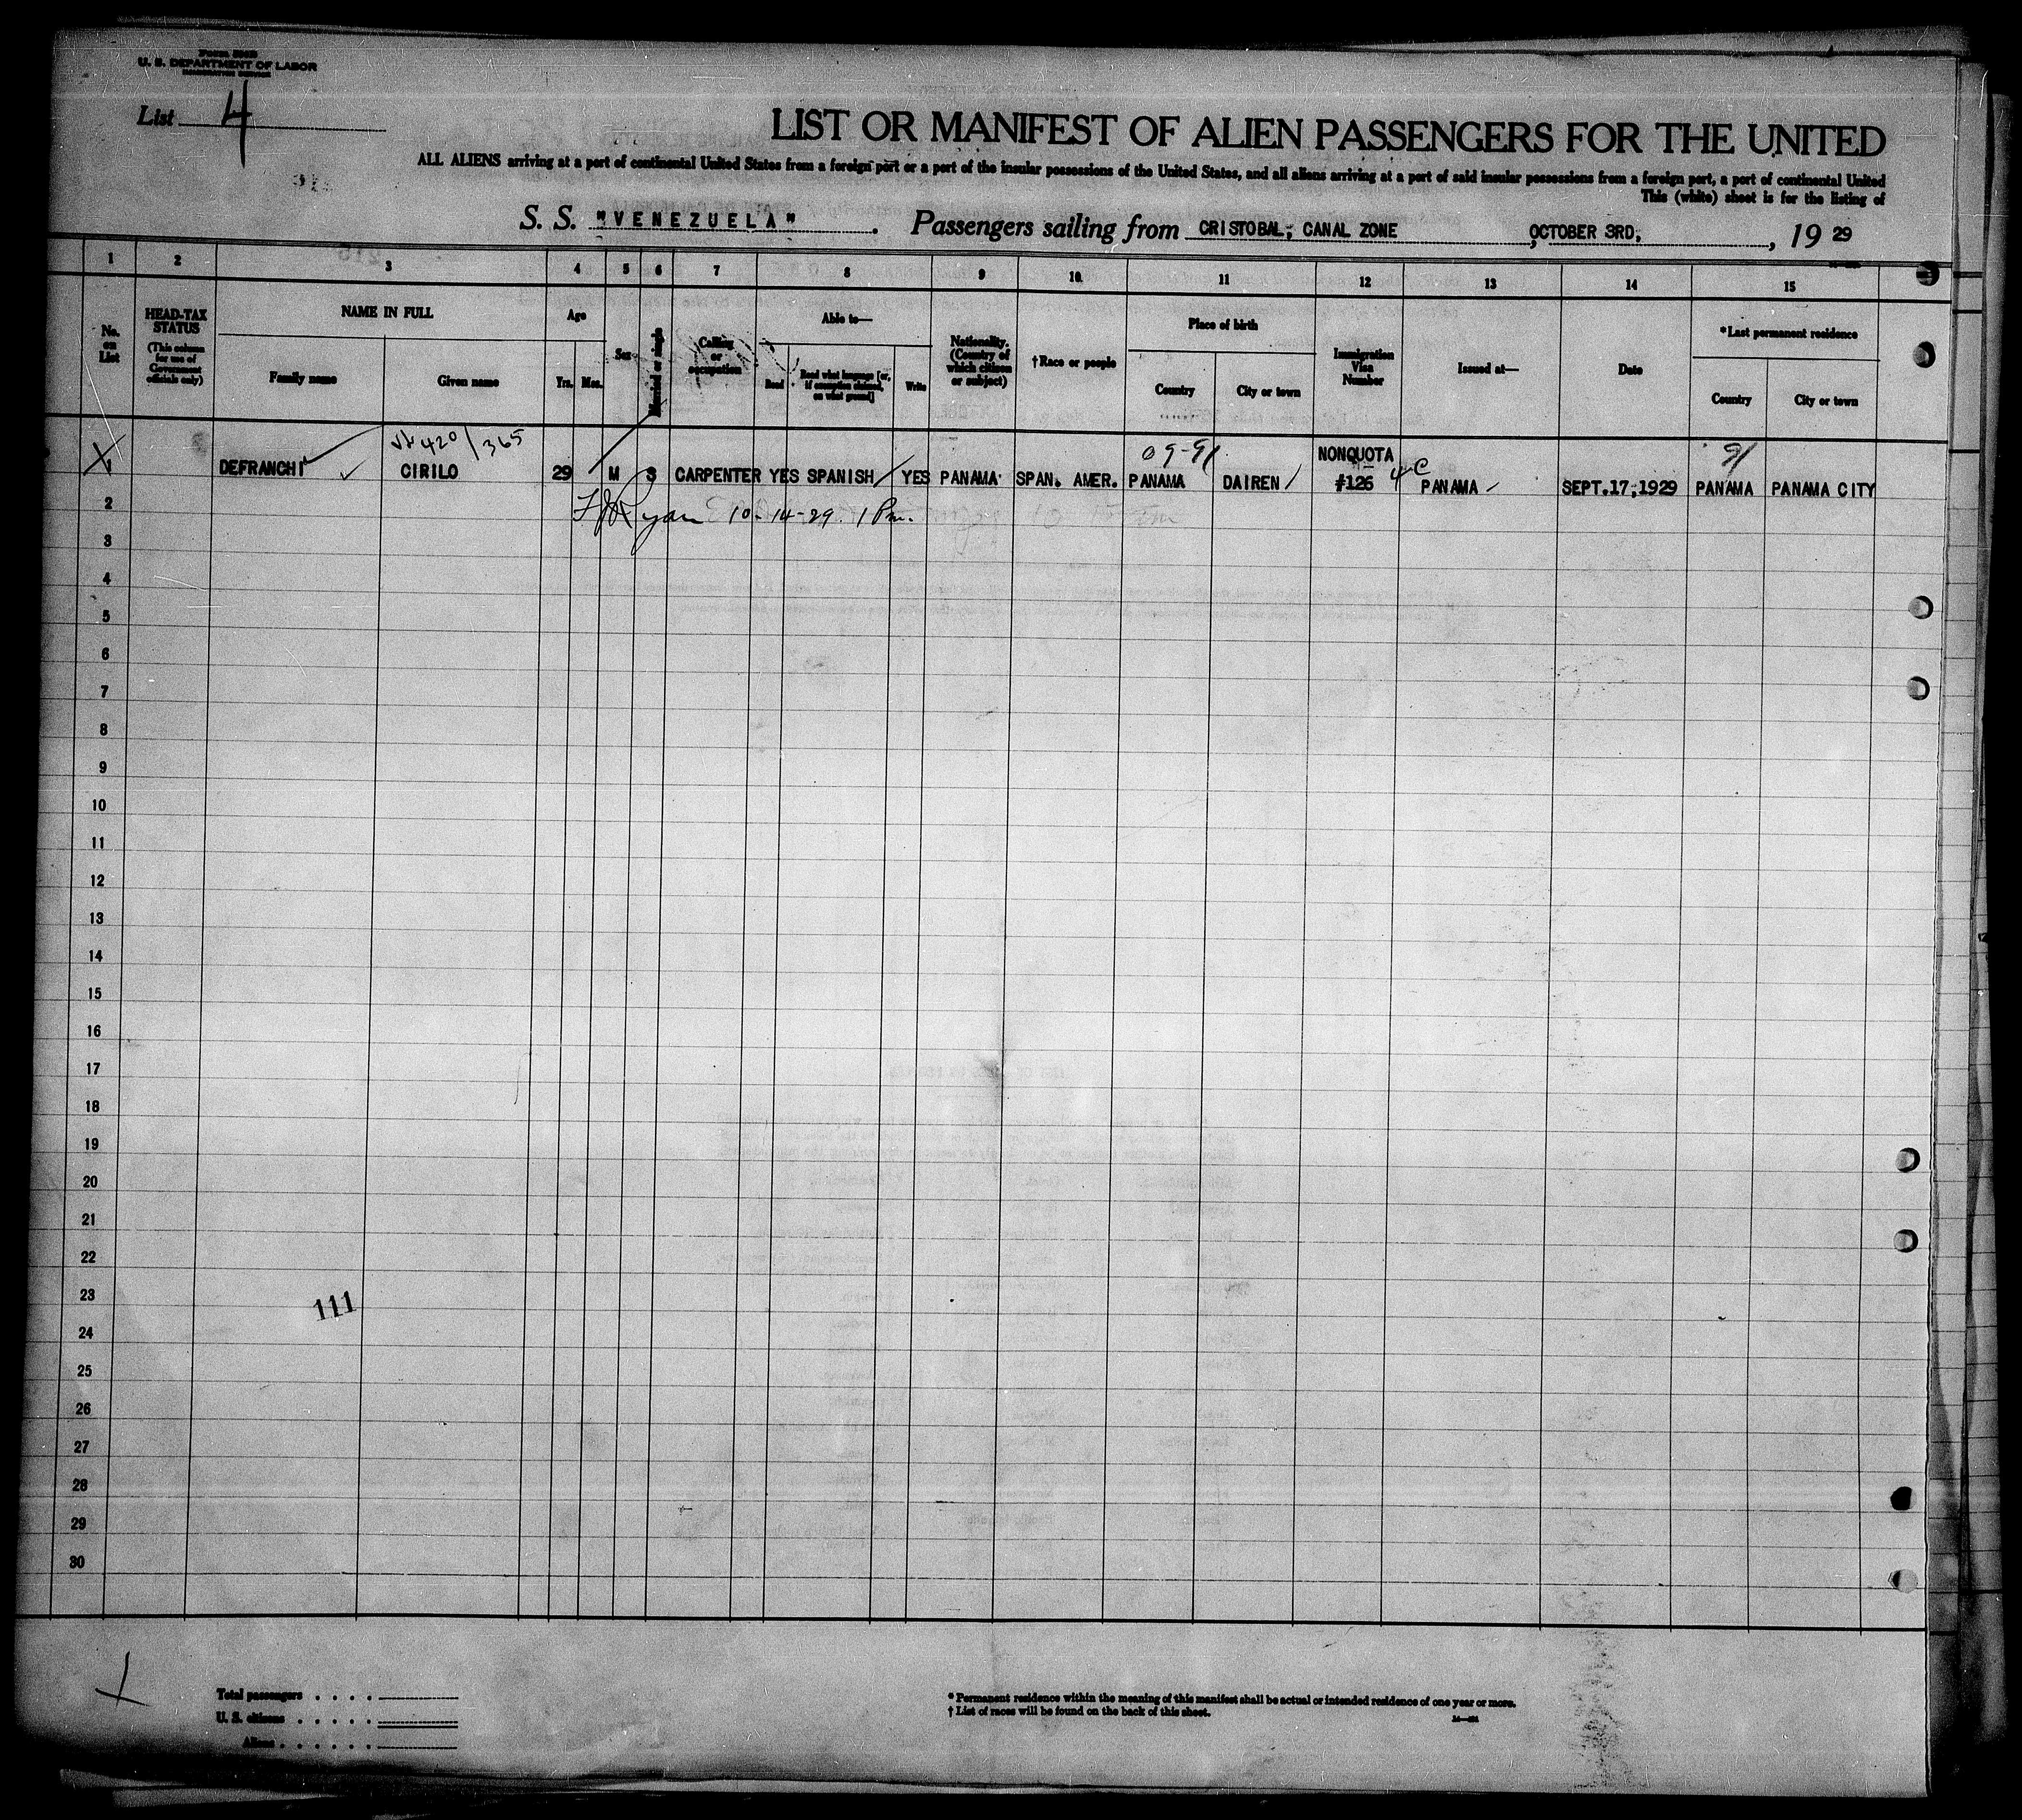 U. S. DEPARTMENT OF LABOR
IMMIGRATION SERVICE
List 4
LIST OR MANIFEST OF ALIEN PASSENGERS FOR THE UNITED
ALL ALIENS arriving at a port of continental United States from a foreign port or a port of the insular possessions of the United States, and all aliens arriving at a port of said insular possessions from a foreign port, a port of continental United
This (white) sheet is for the listing of
S. S. "VENEZUELA". Passengers sailing from CRISTOBAL, CANAL ZONE, OCTOBER 3RD, , 19 29
1 2 3 4 5 6 7 8 9 10 11 12 13 14 15
No. on List
HEAD-TAX STATUS
(This column for use of Government officials only)
NAME IN FULL
Family name
Given name
Age
Yrs. Mos.
Sex
Married or single
Calling or occupation
Able to—
Read
Read what language [or, if exemption claimed, on what ground]
Write
Nationality. (Country of which citizen or subject)
†Race or people
Place of birth
Country
City or town
Immigration Visa Number
Issued at—
Date
*Last permanent residence
Country
City or town
420/365
09-91
91
NONQUOTA
1 DEFRANCHI CIRILO 29 M S CARPENTER YES SPANISH YES PANAMA SPAN. AMER. PANAMA DAIREN #126 4-C PANAMA SEPT.17,1929 PANAMA PANAMA CITY
Ryan 10-14-29. 1 Pm.
2
3
4
5
6
7
8
9
10
11
12
13
14
15
16
17
18
19
20
21
22
23
111
24
25
26
27
28
29
30
Total passengers . . . .
U. S. citizens . . . . .
Aliens . . . . . .
* Permanent residence within the meaning of this manifest shall be actual or intended residence of one year or more.
† List of races will be found on the back of this sheet.